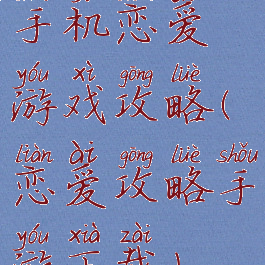 手机恋爱
yóu xì gōng lüè
游戏攻略(
liàn ài gōng lüè shǒu
恋爱攻略手
yóu xià zài
游下载)